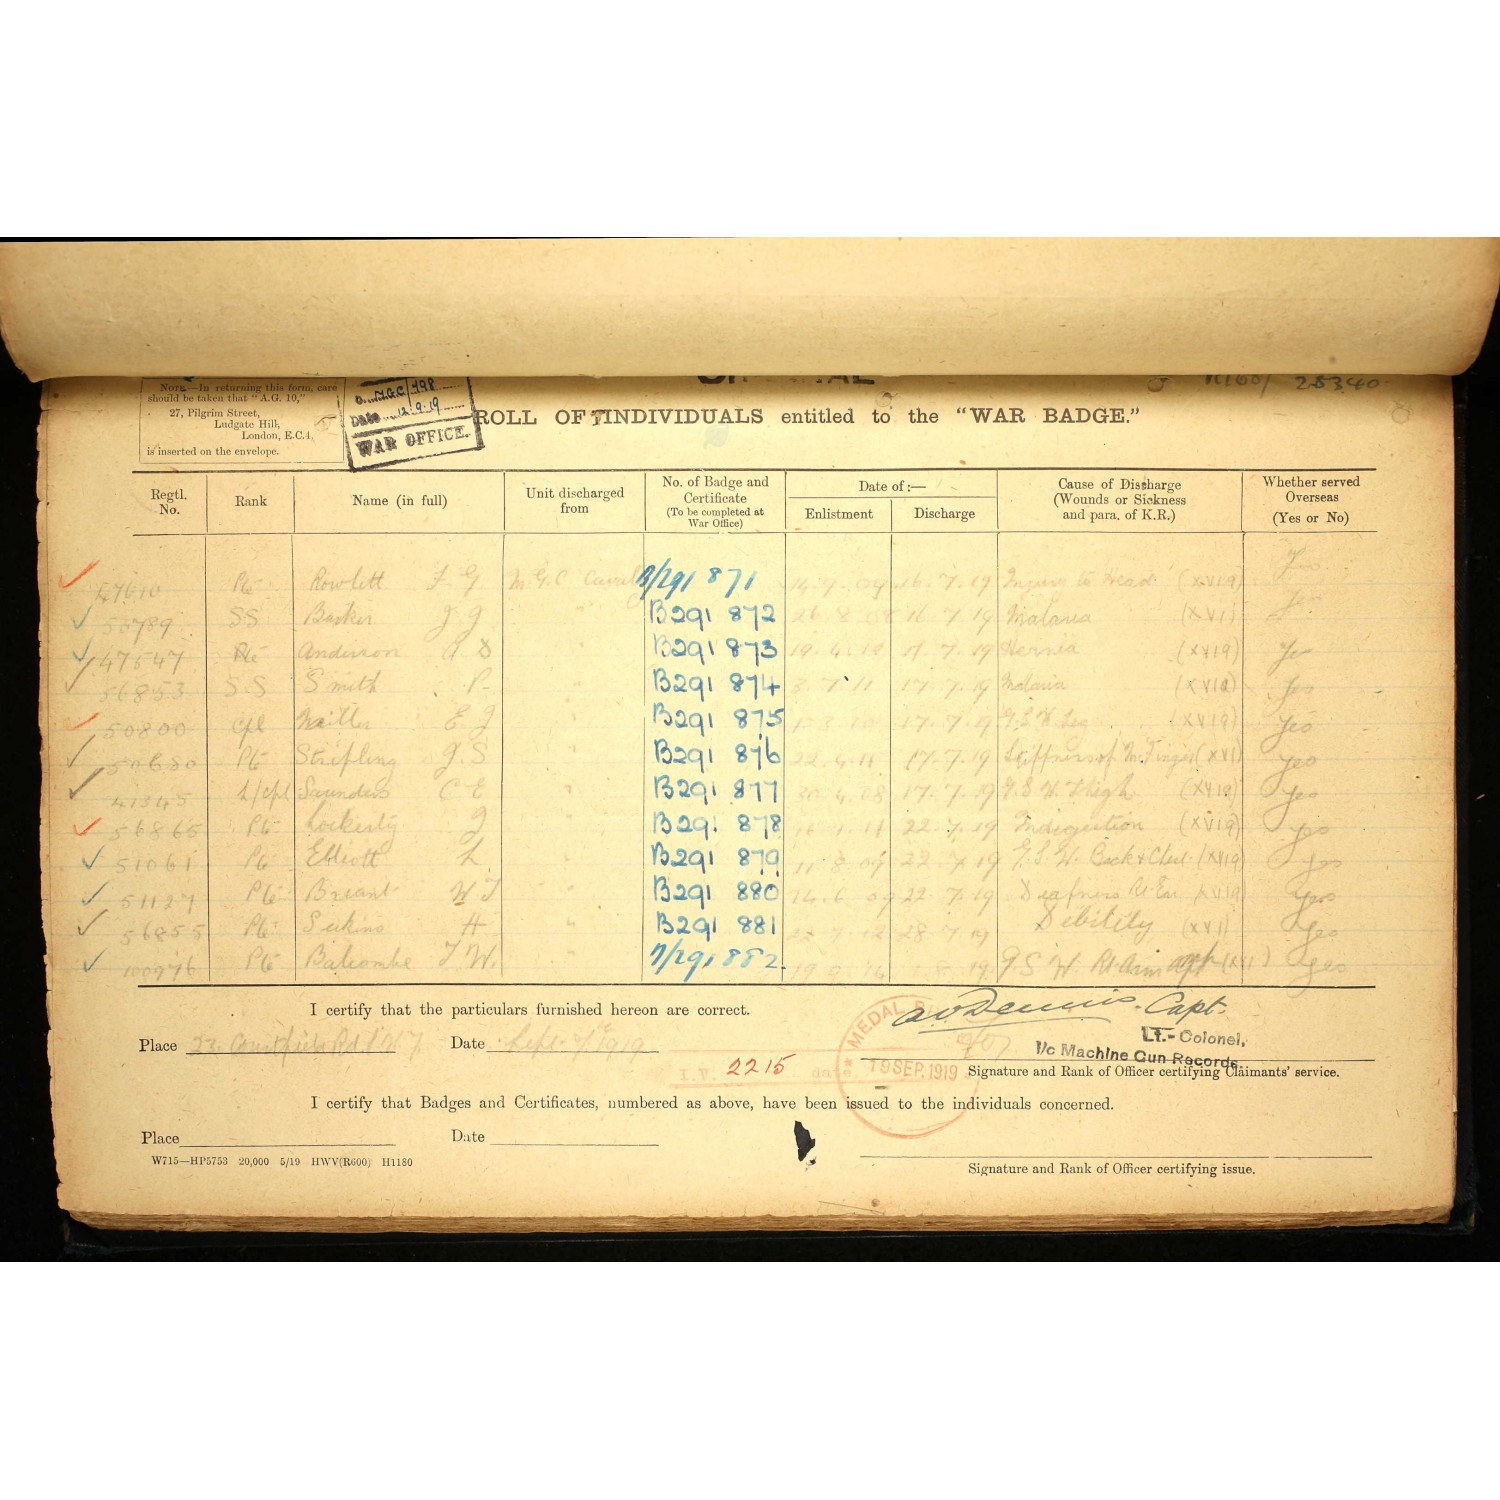 NOTE.—In returning this form, care
should be taken that "A.G. 10,"
27, Pilgrim Street,
Ludgate Hill,
London, E.C.4.
is inserted on the envelope.
M.G.C./498
Date 12.9.19
WAR OFFICE.
28340
ROLL OF INDIVIDUALS entitled to the "WAR BADGE."
Regtl. No. Rank Name (in full) Unit discharged from No. of Badge and Certificate (To be completed at War Office) Date of:— Enlistment Discharge Cause of Discharge (Wounds or Sickness and para. of K.R.) Whether served Overseas (Yes or No)
47610 Pte Rowlett F G M.G.C Cavalry B/291 871 14.9.09 16.7.19 Injury to Head (XVIa) Yes
50789 SS Barker J J " B291 872 26.8.08 16.7.19 Malaria (XVI) Yes
47547 Pte Anderson A D " B291 873 19.4.19 (XVIa) Hernia Yes
56853 S.S Smith P. " B291 874 17.7.19 Malaria (XVIa) Yes
50800 Cpl E J " B291 875 17.7.19 G.S.W. Leg (XVIa) Yes
50680 Pte Stripling J.S " B291 876 22.4.11 17.7.19 Stiffness of M. Finger (XVI) Yes
41345 L/Cpl Saunders C E " B291 877 30.4.08 17.7.19 G.S.W. Thigh (XVIa) Yes
56865 Pte Lockerty J " B291 878 22.7.19 Indigestion (XVIa) Yes
51061 Pte Elliott L " B291 879 11.8.09 22.7.19 G.S.W. Back & Chest (XVIa) Yes
51127 Pte Breant W J " B291 880 14.6.09 22.7.19 Deafness Rt Ear XVIa Yes
56855 Pte Seekins H " B291 881 22.7.12 28.7.19 Debility (XVI) Yes
100976 Pte Balcombe T W. " B/291 882. 19.9.14 .8.19. G.S.W. Rt. Arm (XVI) Yes
I certify that the particulars furnished hereon are correct.
A W Dennis. Capt.
Lt.-Colonel,
i/c Machine Gun Records.
Place 23. Rd Date Sept. 1919
I.V. 2215 date
MEDAL 19 SEP. 1919
Signature and Rank of Officer certifying Claimants' service.
I certify that Badges and Certificates, numbered as above, have been issued to the individuals concerned.
Place Date
W715—HP5753 20,000 5/19 HWV(R600) H1180
Signature and Rank of Officer certifying issue.